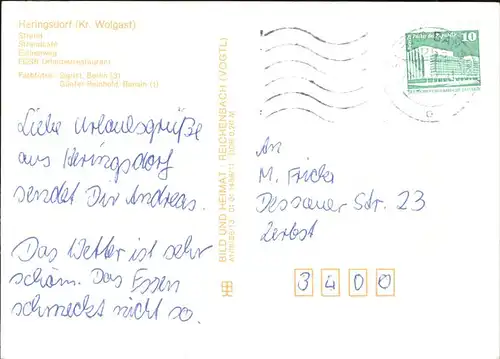 Heringsdorf (Kr. Wolgast)
Strand
Strandcafé
FDGB Urlauberrestaurant
Farbfotos: Berlin (3)
Günter Reinhold, (1)
Liebe Urlaubsgrüße
aus Heringsdorf
sendet Dir Andreas.
Das Wetter ist sehr
schön. Das Essen
schmeckt nicht so.
BILD UND HEIMAT REICHENBACH (VOGTL)
10
An
M. Fricke
Dessauer Str. 23
Zerbst
3400